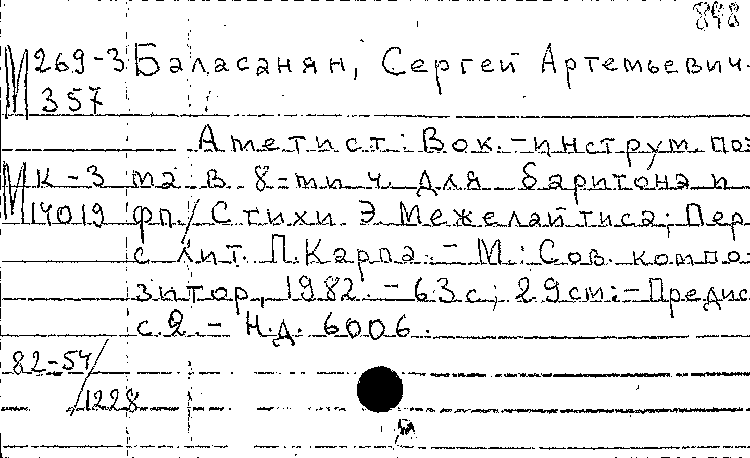 848
М 269-3 Баласанян, Сергей Артемьевич.
357
Аметист: Вок.-инструм. поэ
М К-3 ма в 8-ми ч. для баритона и
14019 фп./ Стихи Э. Межелайтиса; Пер
с лит. П. Карпа. - М.: Сов. компо-
зитор, 1982. - 63 с; 29 см. - Предис
с. 2. - Н.д. 6006.
82-54/
1228